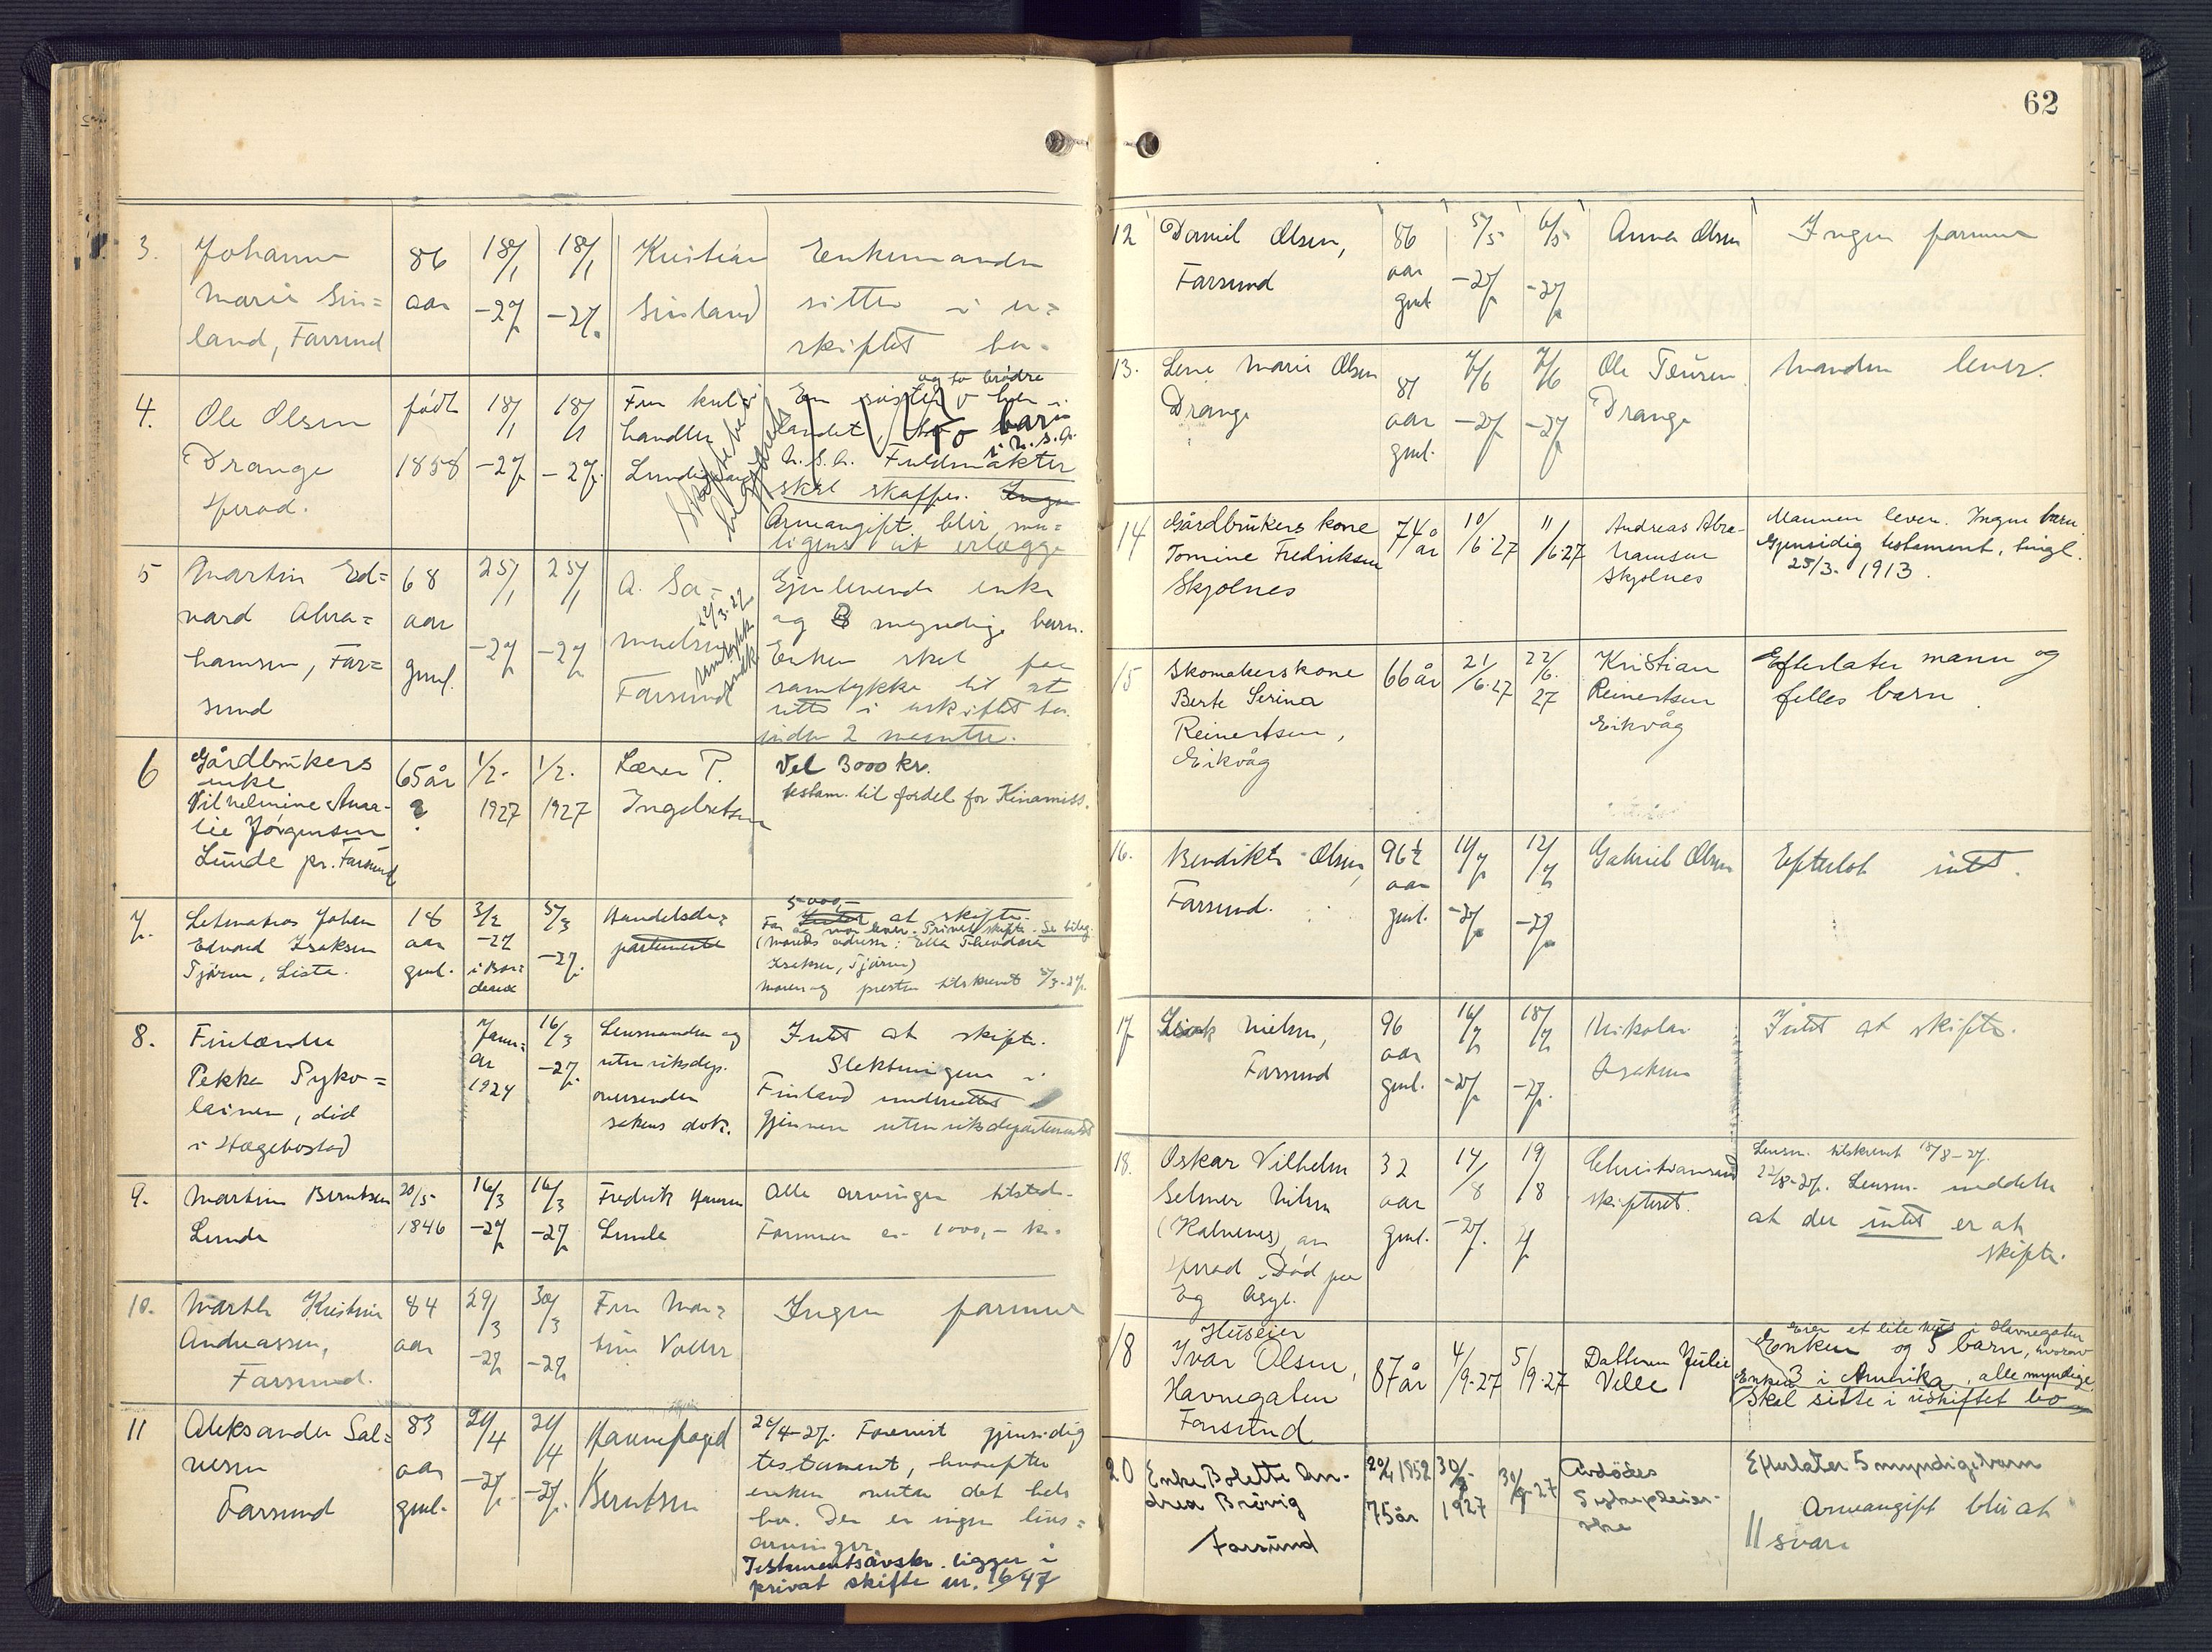 62
3.
Johanne
Marie Sin=
land, Farsund
86
aar
18/1
-27
18/1
-27.
Kristian
Sinland
Enkemanden
sitter i u=
skiftet bo.
4.
Ole Olsen
Drange
Herad.
født
1858
18/1
-27
18/1
-27.
Fru kul=
handler
og to brødre
En søster
landet,
barn
i U.S.A.
U.S.A. Fuldmakter
skal skaffes. Ingen
Arveangift blir mu=
ligens at erlægge
5
Martin Ed=
vard Abra=
hamsen, Far=
sund
68
aar
gml.
25/1
-27
25/1
-27
A. Sa=
muelsen
Farsund
Gjenlevende enke
og 8 myndige barn.
Enken skal faa
samtykke til at
sitte i uskiftet bo
inden 2 maaneder.
6
Gårdbrukers
enke
Vilhelmine Ama-
lie Jörgensen
Lunde pr. Farsund
65 år
?
1/2.
1927
1/2.
1927
Lærer P.
Ingebretsen
Vel 3000 kr.
testam. til fordel for Kinamiss.
7.
Letmatros Johan
Edvard Isaksen
Tjörve, Lista.
18
aar
gml.
3/2
-27
i Bor=
deaux
5/3
-27.
Handelsde=
partementet
5000,-
Intet at skifte.
Far og mor lever. Privat skifte. Se bilag.
(Morens adresse: Ella Theodora
Isaksen, Tjörve)
Moren og presten tilskrevet 5/3-27.
8.
Finlænder
Pekka Pyko=
lainen, död
i Hægebostad
Janu=
ar
1924
16/3
-27.
Lensmanden og
utenriksdep.
oversender
sakens dok.
Intet at skifte.
Slektningene i
Finland underrettet
gjennem utenriksdepartementet
9.
Martin Berntsen
Lunde
20/5
1846
16/3
-27
16/3
-27
Fredrik Hansen
Lunde
Alle arvinger tilstede.
Formuen ca. 1000,- kr.
10.
Marthe Kristine
Andreassen,
Farsund.
84
aar
29/3
-27
30/3
-27
Fru Mar=
tine
Ingen formue
11
Aleksander Sal=
vesen
Farsund
83
aar
gml.
21/4
-27.
21/4
-27.
Havnefoged
Berntsen
26/4-27. Forevist gjensidig
testament, hvorefter
enken overtar det hele
bo. Der er ingen livs=
arvinger.
Testamentsavskr. ligger i
privat skifte nr. 16/47
12
Daniel Olsen,
Farsund
86
aar
gml.
5/5
-27
6/5
-27
Anna Olsen
Ingen formue
13.
Lene Marie Olsen
Drange
81
aar
gml.
7/6
-27
7/6
-27
Ole Tønnesen
Drange
Manden lever.
14
Gårdbrukers kone
Tomine Fredriksen
Skjolnes
74 år
10/6.27
11/6.27
Andreas Abra-
hamsen
Skjolnes
Mannen lever. Ingen barn
Gjensidig testament, tingl.
25/3. 1913.
15
Skomakerskone
Berte Serina
Reinertsen,
Eikvåg
66 år
21/6.27
22/6.
27
Kristian
Reinertsen
Eikvåg
Efterlater mann og
felles barn.
16.
Bendikte Olsen,
Farsund.
96½
aar
gml.
11/7
-27
12/7
-27.
Gabriel Olsen
Efterlot intet.
17
Isak Nielsen,
Farsund
96
aar
gml.
16/7
-27
18/7
-27.
Nikolai
Isaksen
Intet at skifte.
18.
Oskar Vilhelm
Selmer Nilsen
(Kalvenes), av
Herad. Död paa
Eg Asyl.
32
aar
gml.
14/8
-27.
19/8
27
Christianssand
skifteret.
Lensm. tilskrevet 18/8-27.
22/8-27. Lensm. meddeler
at der intet er at
skifte.
18
Huseier
Ivar Olsen,
Havnegaten
Farsund
87 år
4/9.27
5/9.27
Datteren Julie
Ville
Eier et lite hus i Havnegaten
Enken og 5 barn, hvorav
3 i Amerika, alle myndige.
Enken
Skal sitte i uskiftet bo
20
Enke Bolette An-
drea Brövig
Farsund
20/4 1852
75 år
30/9.
1927
30/9.27
Avdödes
Sykepleier-
ske
Efterlater 5 myndige barn
Arveangift blir at
svare